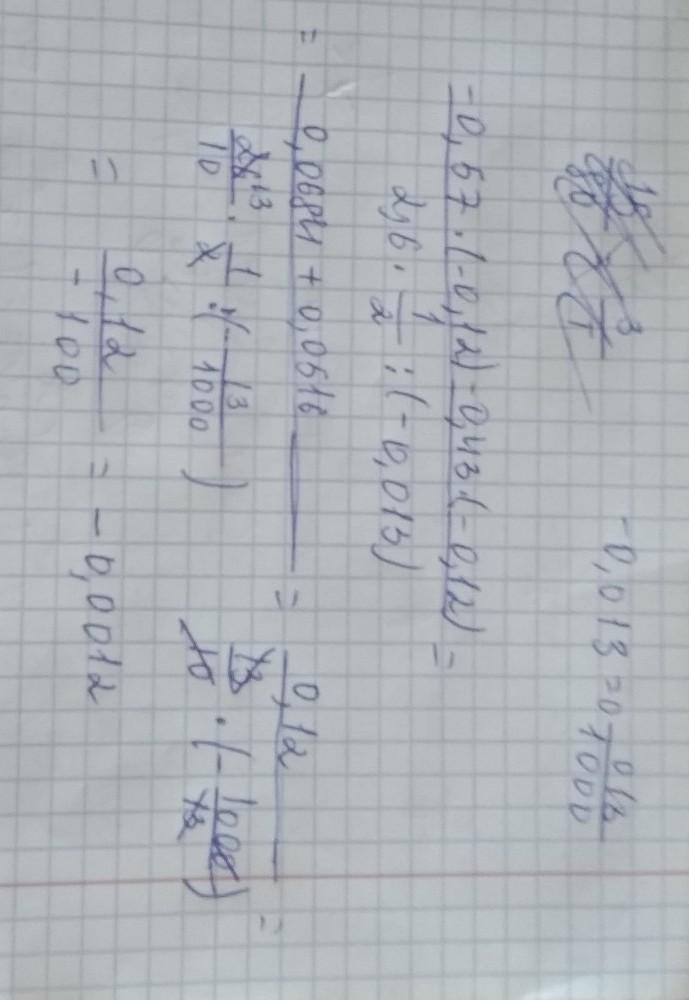 -0,013 = 0 013/1000
-0,57 · (-0,12) - 0,43 (-0,12) =
2,6 · 1/2 : (-0,013)
= 0,0684 + 0,0516 = 0,12 =
26 13/10 · 1/2 : (- 13/1000) 13/10 · (- 1000/13)
= 0,12/-100 = - 0,0012